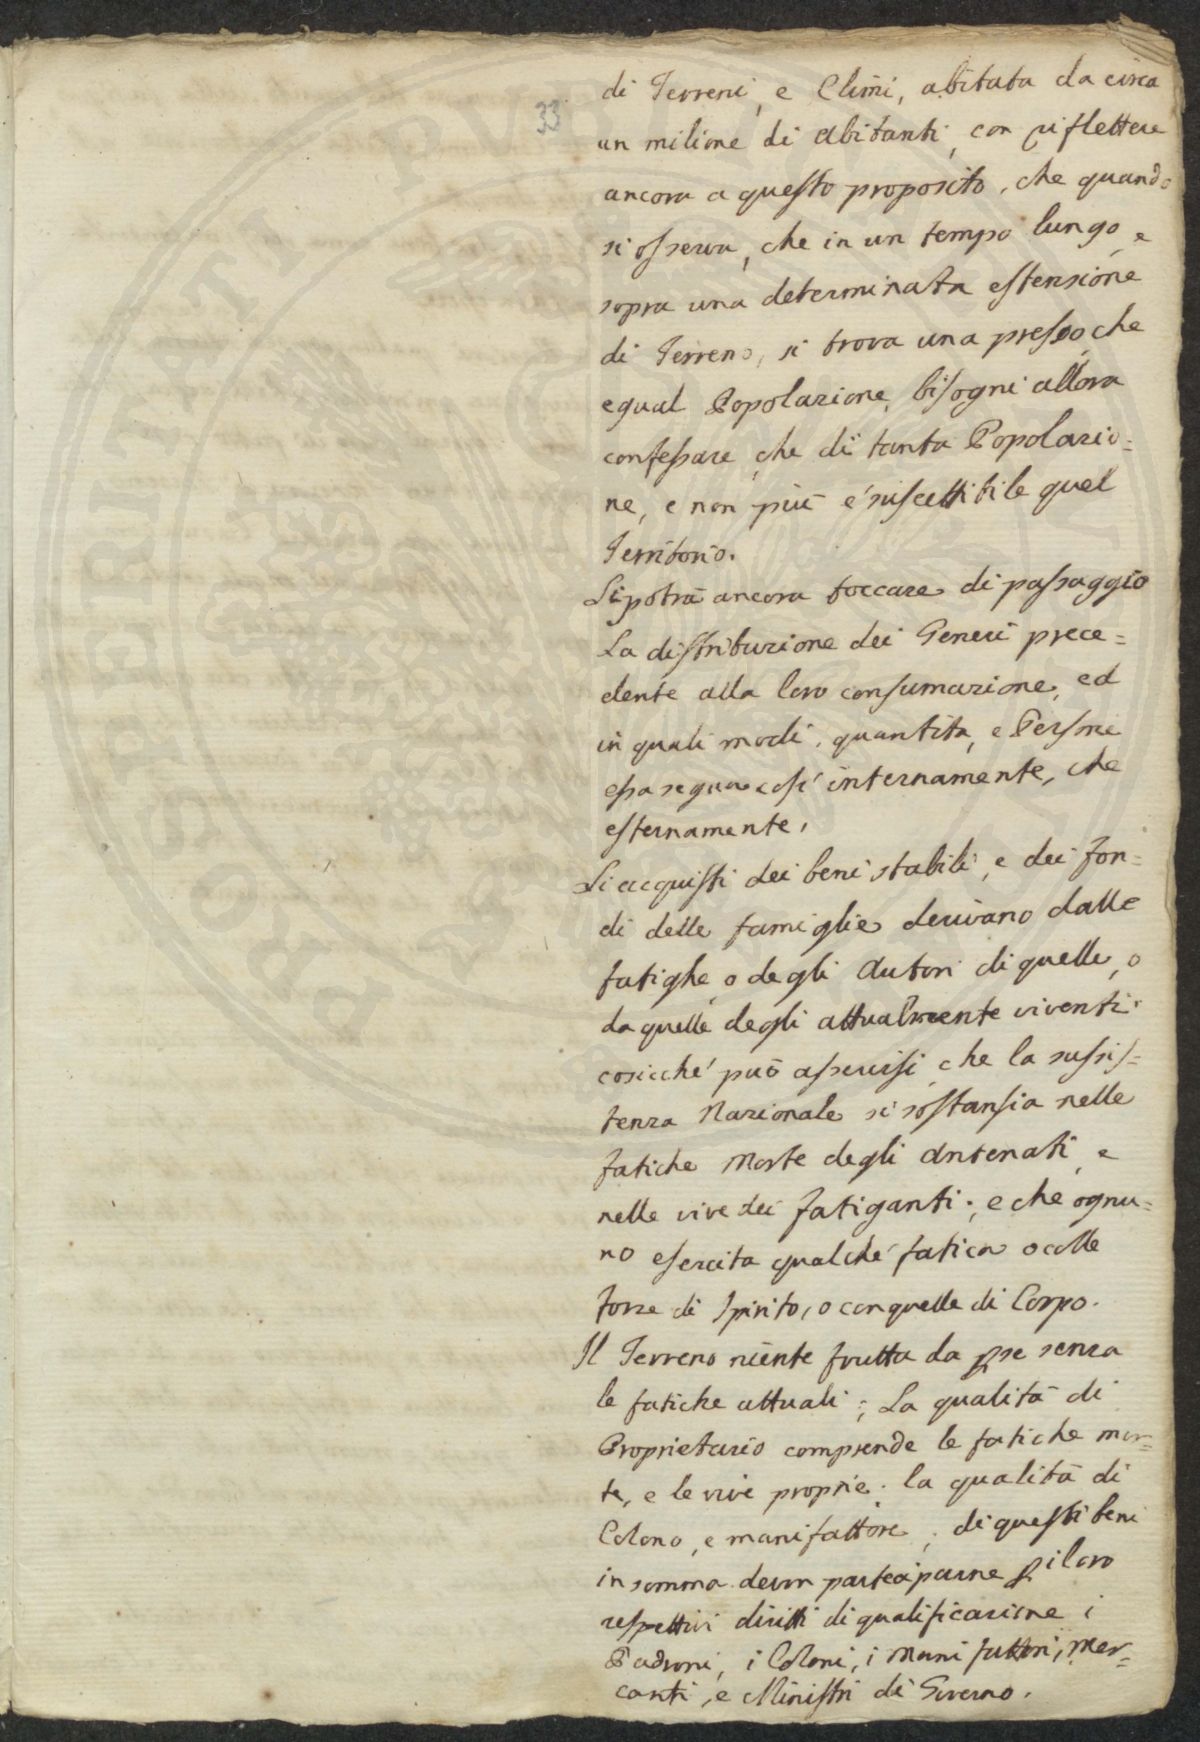 33
di Terreni, e Climi, abitata da circa
un milione di abitanti, con riflettere
ancora a questo proposito, che quando
si osserva, che in un tempo lungo, e
sopra una determinata estensione
di Terreno, si trova una presso che
egual Popolazione, bisogni allora
confessare, che di tanta Popolazio=
ne, e non più é suscettibile quel
Territorio.
Si potrà ancora toccare di passaggio
La distribuzione dei Generi prece=
dente alla loro consumazione, ed
in quali modi, quantita, e Persone
essa segua così internamente, che
esternamente,
Li acquisti dei beni stabili, e dei fon=
di delle famiglie derivano dalle
fatighe, o degli Autori di quelle, o
da quelle degli attualmente viventi.
cosicché può asserirsi, che la sussis=
tenza Nazionale si sostansia nelle
fatiche Morte degli Antenati, e
nelle vive dei fatiganti; e che ognu=
no esercita qualche fatica o colle
forze di Spirito, o con quelle di Corpo.
Il Terreno niente frutta da se senza
le fatiche attuali; La qualità di
Proprietario comprende le fatiche mor=
te, e le vive proprie; la qualità di
Colono, e manifattore; di questi beni
in somma devon partecparne p i loro
respettivi diritti di qualificazione i
Padroni, i Coloni, i Manifattori, Mer=
canti, e Ministri di Governo.